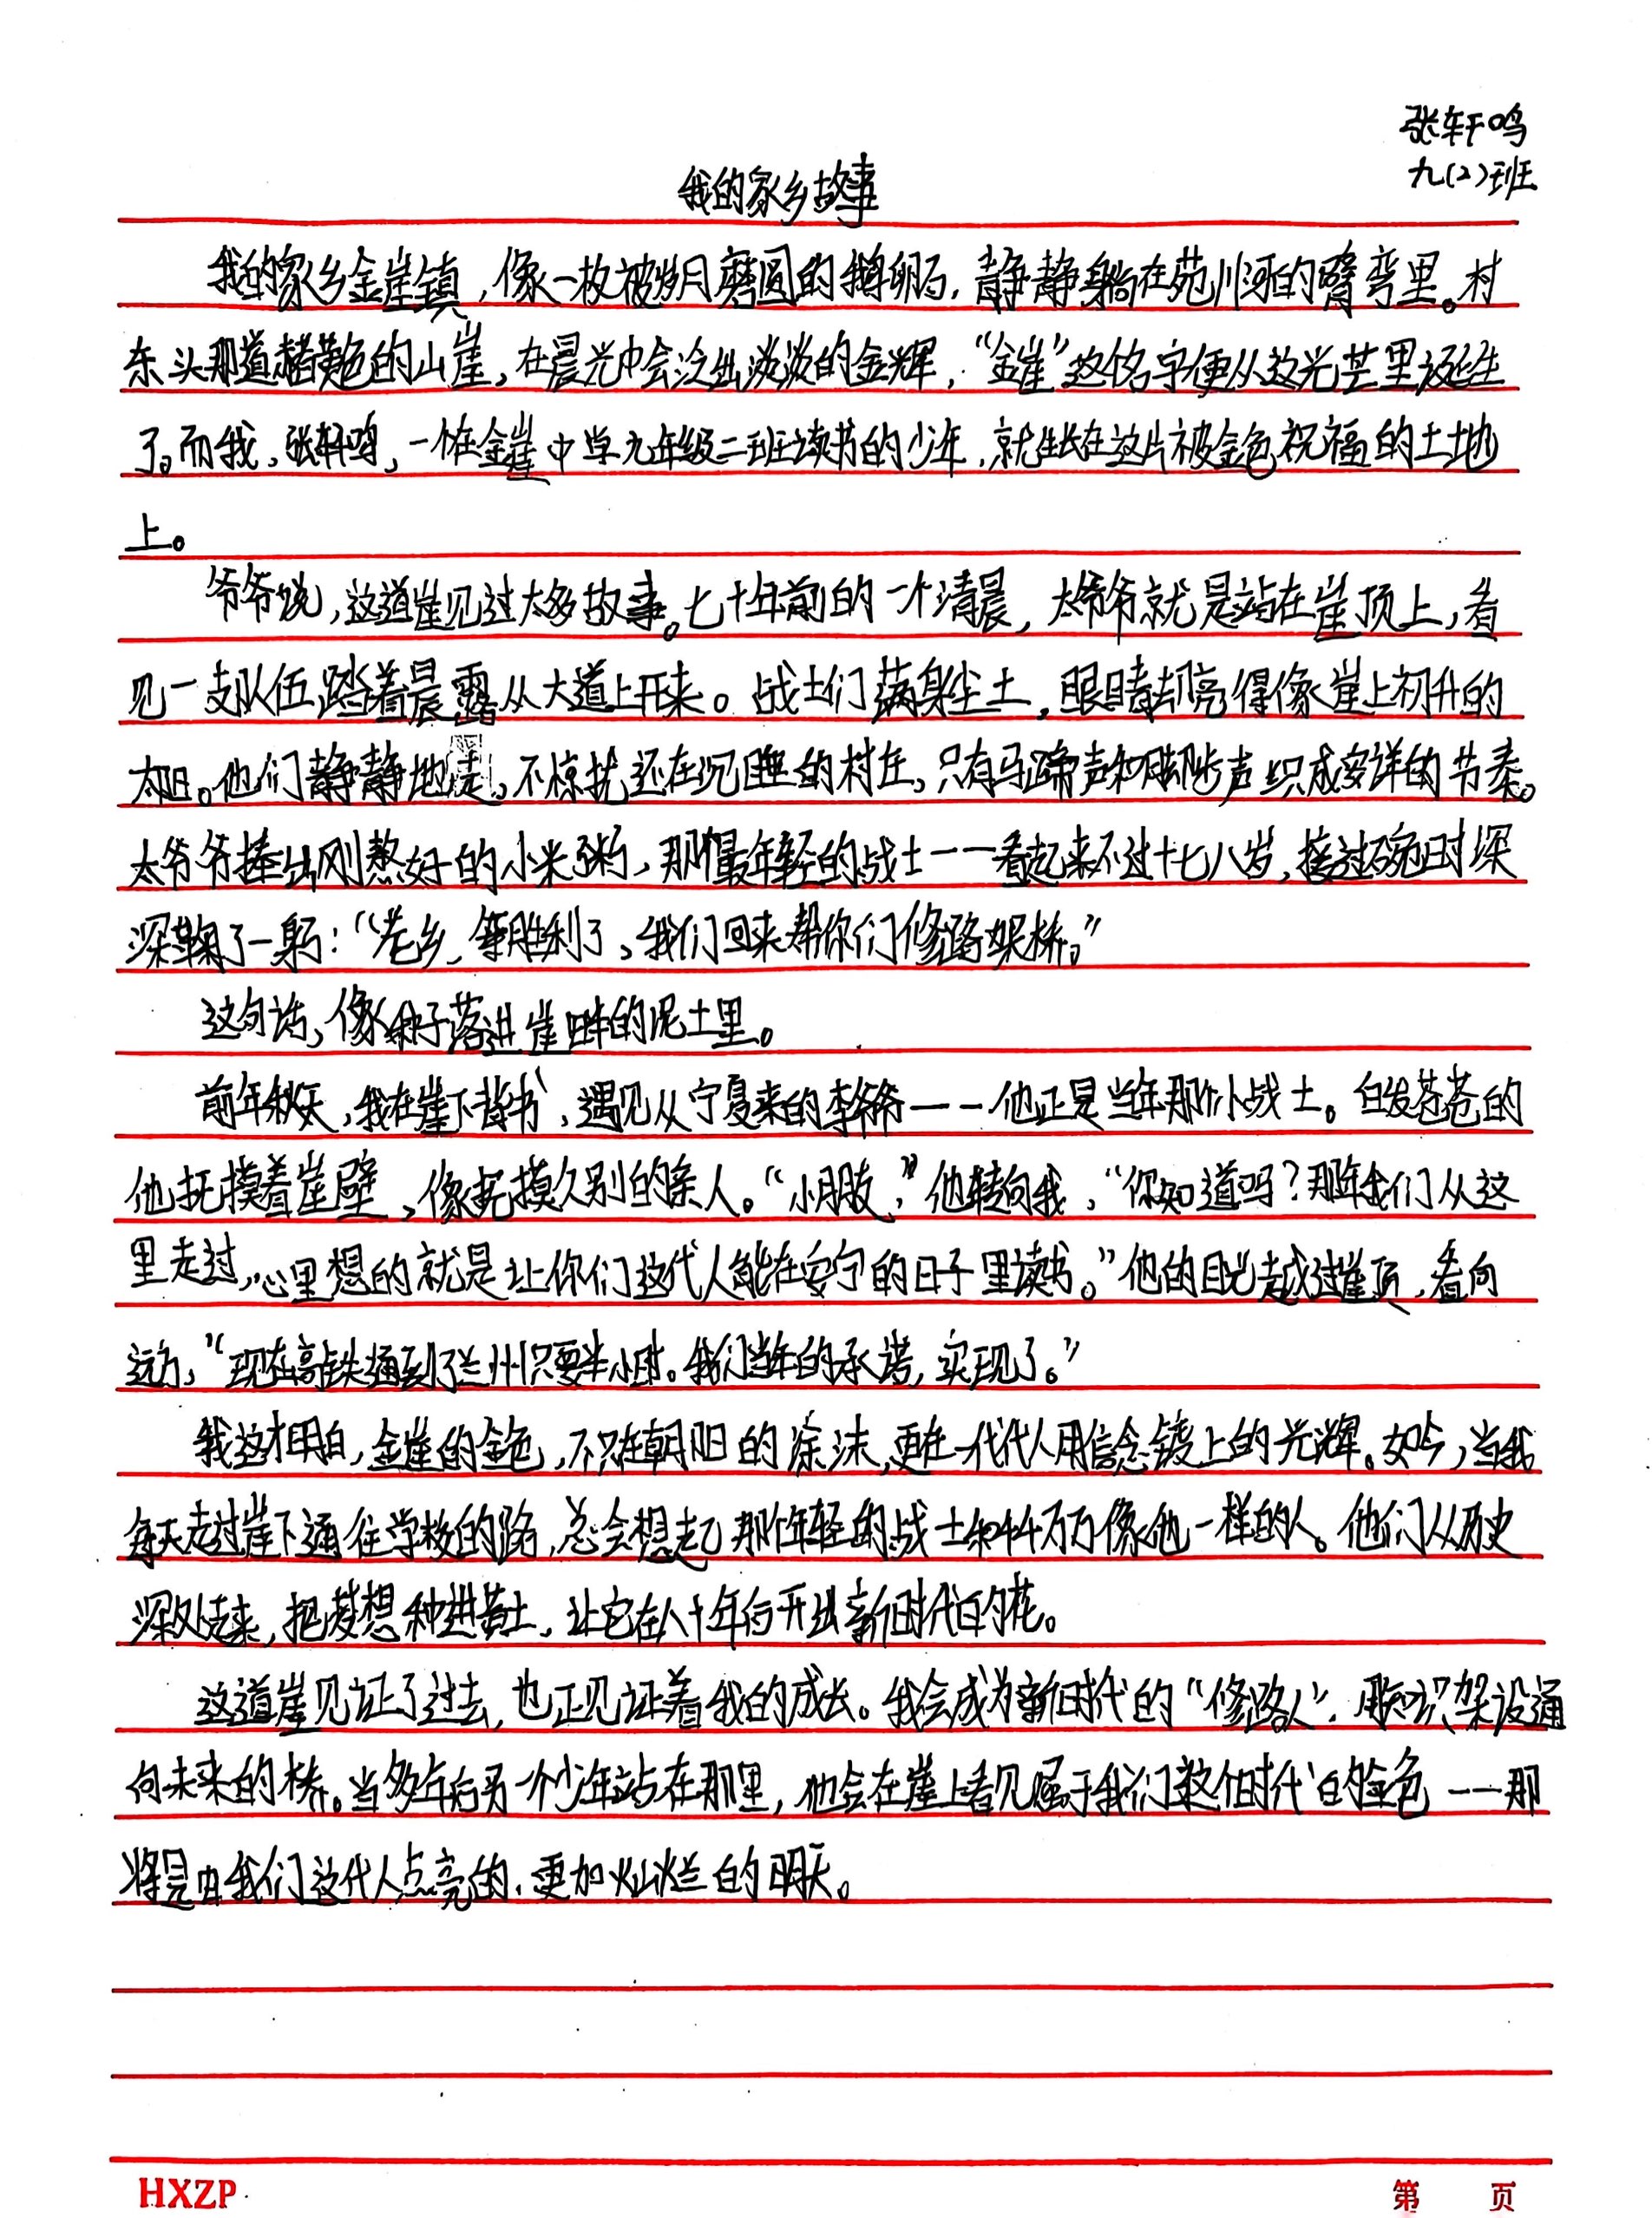 张轩鸣
九(2)班
我的家乡故事
我的家乡金崖镇,像一枚被岁月磨圆的鹅卵石,静静躺在苑川河的臂弯里。村
东头那道赭黄色的山崖,在晨光中会泛出淡淡的金辉,“金崖”这个名字便从这光芒里诞生
了。而我,张轩鸣,一个在金崖中学九年级二班读书的少年,就生长在这片被金色祝福的土地
上。
爷爷说,这道崖见过太多故事。七十年前的一个清晨,太爷爷就是站在崖顶上,看
见一支队伍踏着晨露从大道上开来。战士们满身尘土,眼睛却亮得像崖上初升的
太阳。他们静静地走,不惊扰还在沉睡的村庄,只有马蹄声和脚步声织成安详的节奏。
太爷爷捧出刚熬好的小米粥,那个最年轻的战士——看起来不过十七八岁,接过碗时深
深鞠了一躬:“老乡,等胜利了,我们回来帮你们修路架桥。”
这句话,像种子落进崖畔的泥土里。
前年秋天,我在崖下背书,遇见从宁夏来的李爷爷——他正是当年那个小战士。白发苍苍的
他抚摸着崖壁,像抚摸久别的亲人。“小朋友,”他转向我,“你知道吗?那年我们从这
里走过,心里想的就是让你们这代人能在安宁的日子里读书。”他的目光越过崖顶,看向
远方,“现在高铁通到了兰州只要半小时。我们当年的承诺,实现了。”
我这才明白,金崖的金色,不只在朝阳的涂沫,更在一代代人用信念镀上的光辉。如今,当我
每天走过崖下通往学校的路,总会想起那个年轻的战士和千千万万像他一样的人。他们从历史
深处走来,把梦想种进黄土,让它在八十年后开出新时代的花。
这道崖见证了过去,也正见证着我的成长。我会成为新时代的“修路人”,用知识架设通
向未来的桥。当多年后另一个少年站在那里,他会在崖上看见属于我们这个时代的金色——那
将是由我们这代人点亮的,更加灿烂的明天。
HXZP
第 页